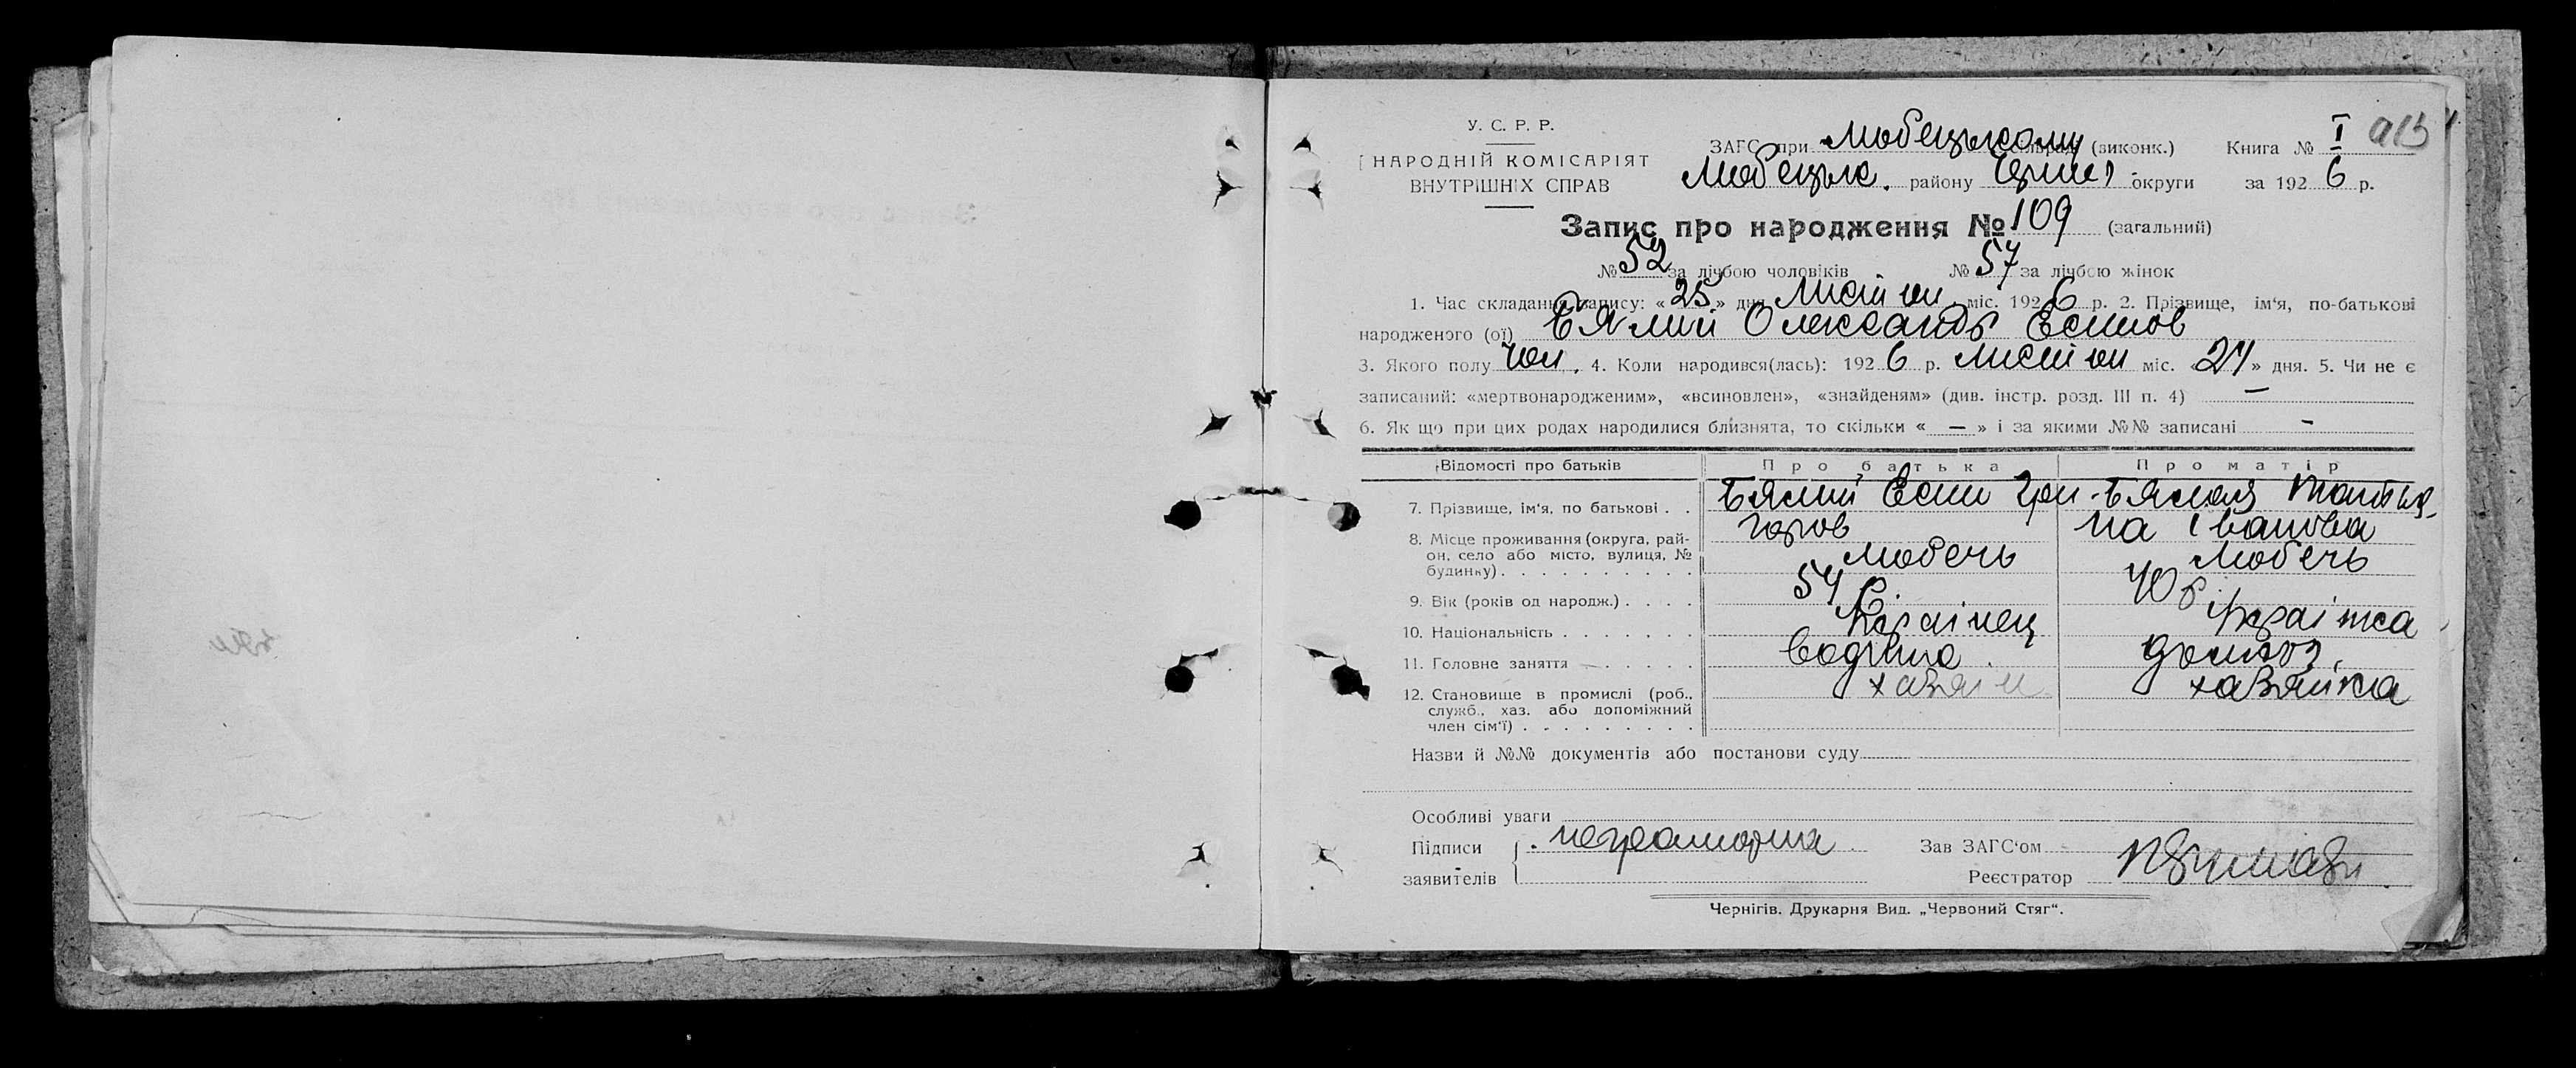 У. С. Р. Р.
НАРОДНІЙ КОМІСАРІЯТ
ВНУТРІШНІХ СПРАВ
ЗАГС при Любецькому сільраді (виконк.) Книга № I
Любецьк. району Черниг округи за 1926 р.
Запис про народження № 109 (загальний)
№ 52 за лічбою чоловіків № 57 за лічбою жінок
1. Час складання запису: «25» дня Листіюп. міс. 1926 р. 2. Прізвище, ім'я, по-батькові
народженого (ої) Бялий Олександр Есипов
3. Якого полу чол. 4. Коли народився(лась): 1926 р. міс. «24» дня. 5. Чи не є
записаний: «мертвонародженим», «всиновлен», «знайденям» (див. інстр. розд. III п. 4) —
6. Як що при цих родах народилися близнята, то скільки « — » і за якими №№ записані -
Відомості про батьків Про батька Про матір
7. Прізвище, ім'я, по батькові . . Бялий Есип Григоров Бялая Татьяна Іванова
8. Місце проживання (округа, район, село або місто, вулиця, № будинку) . . . Любечь Любечь
9. Вік (років од народж.) . . . . 54 р. 40 р.
10. Національність . . . . . . . Українец Українка
11. Головне заняття . . . . . домгоз.
12. Становище в промислі (роб., служб., хаз. або допоміжний член сім'ї) . . . хазяїн хазяйка
Назви й №№ документів або постанови суду
Особливі уваги
Підписи заявителів неграмотна
Зав ЗАГС'ом
Реєстратор
Чернігів. Друкарня Вид. „Червоний Стяг".